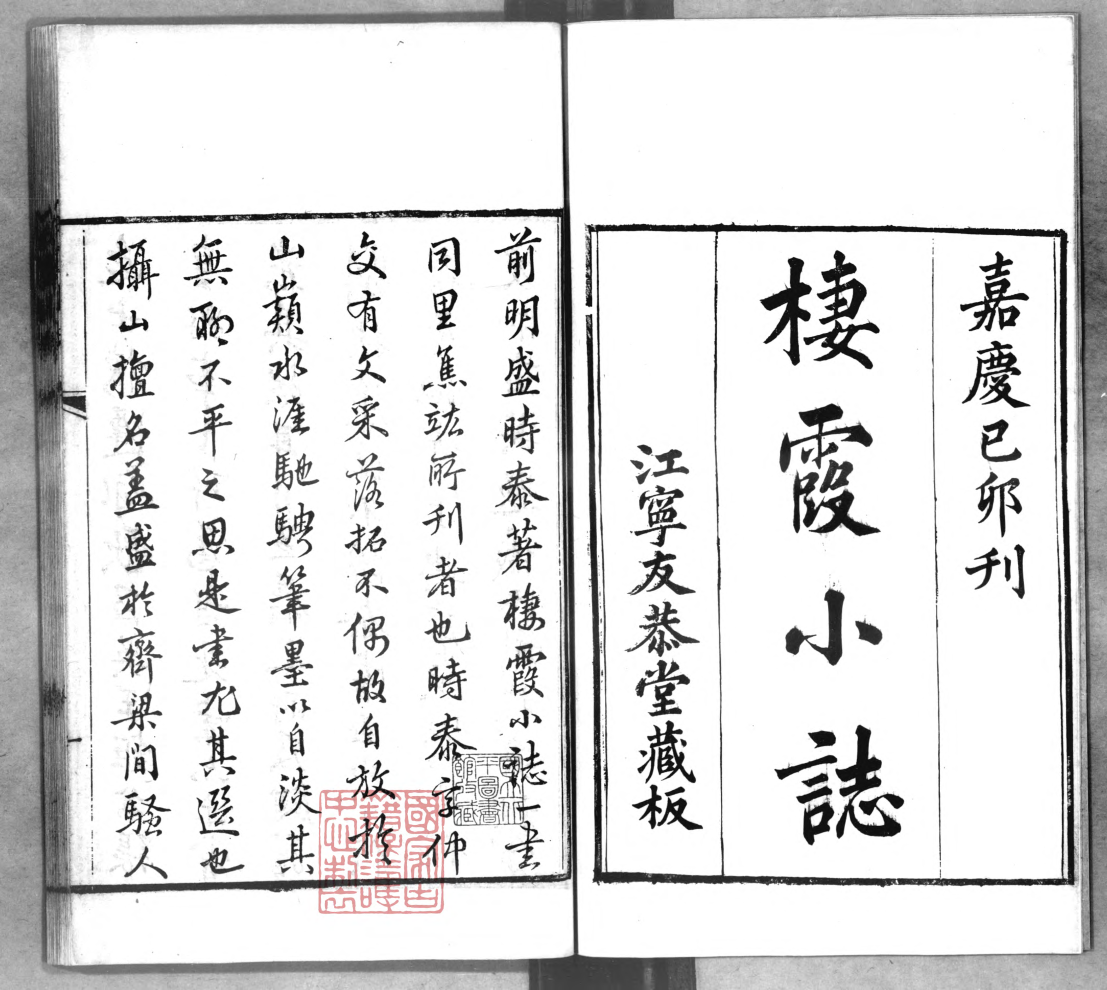 嘉慶己卯刊
棲霞小誌
江寧友恭堂藏板
前明盛時泰著棲霞小誌一書
同里焦竑所刊者也時泰字仲
交有文采落拓不偶故自放於
山巔水涯馳騁筆墨以自淡其
無聊不平之思是書尤其選也
攝山擅名盖盛於齊梁間騷人